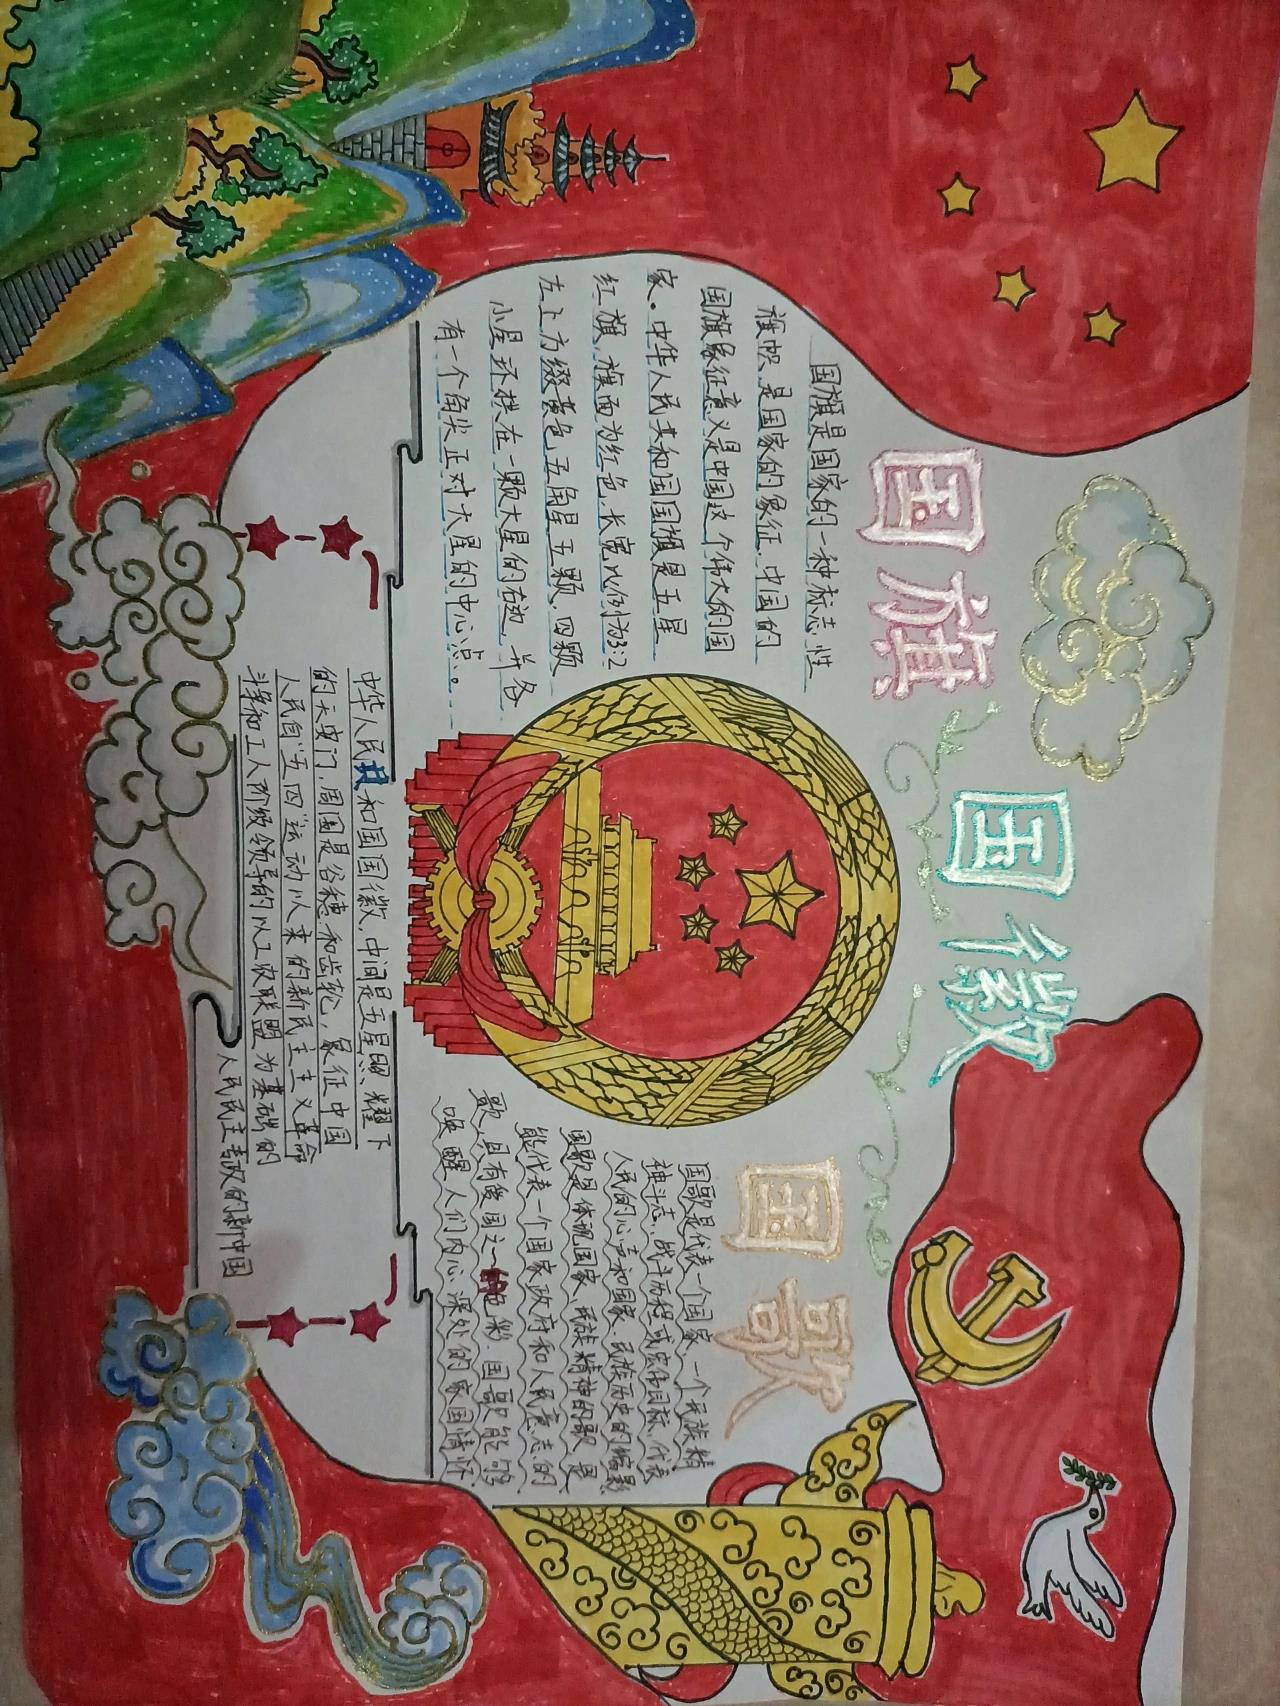 国旗
国徽
国歌
国旗是国家的一种标志性
旗帜,是国家的象征,中国的
国旗象征意义是中国这个伟大的国
家。中华人民共和国国旗是五星
红旗,旗面为红色,长宽比例为3:2
左上方缀黄色五角星五颗,四颗
小星环拱在一颗大星的右边,并各
有一个角尖正对大星的中心点。
国歌是代表一个国家,一个民族精
神斗志、战斗历程或宏伟目标,代表
人民的心声和国家、民族历史的缩影
国歌是体现国家、民族精神的歌,是
能代表一个国家政府和人民意志的
歌,具有爱国之色彩,国歌能够
唤醒人们内心深处的家国情怀
中华人民共和国国徽,中间是五星照耀下
的天安门,周围是谷穗和齿轮,象征中国
人民自“五四”运动以来的新民主主义革命
斗争和工人阶级领导的以工农联盟为基础的
人民民主专政的新中国